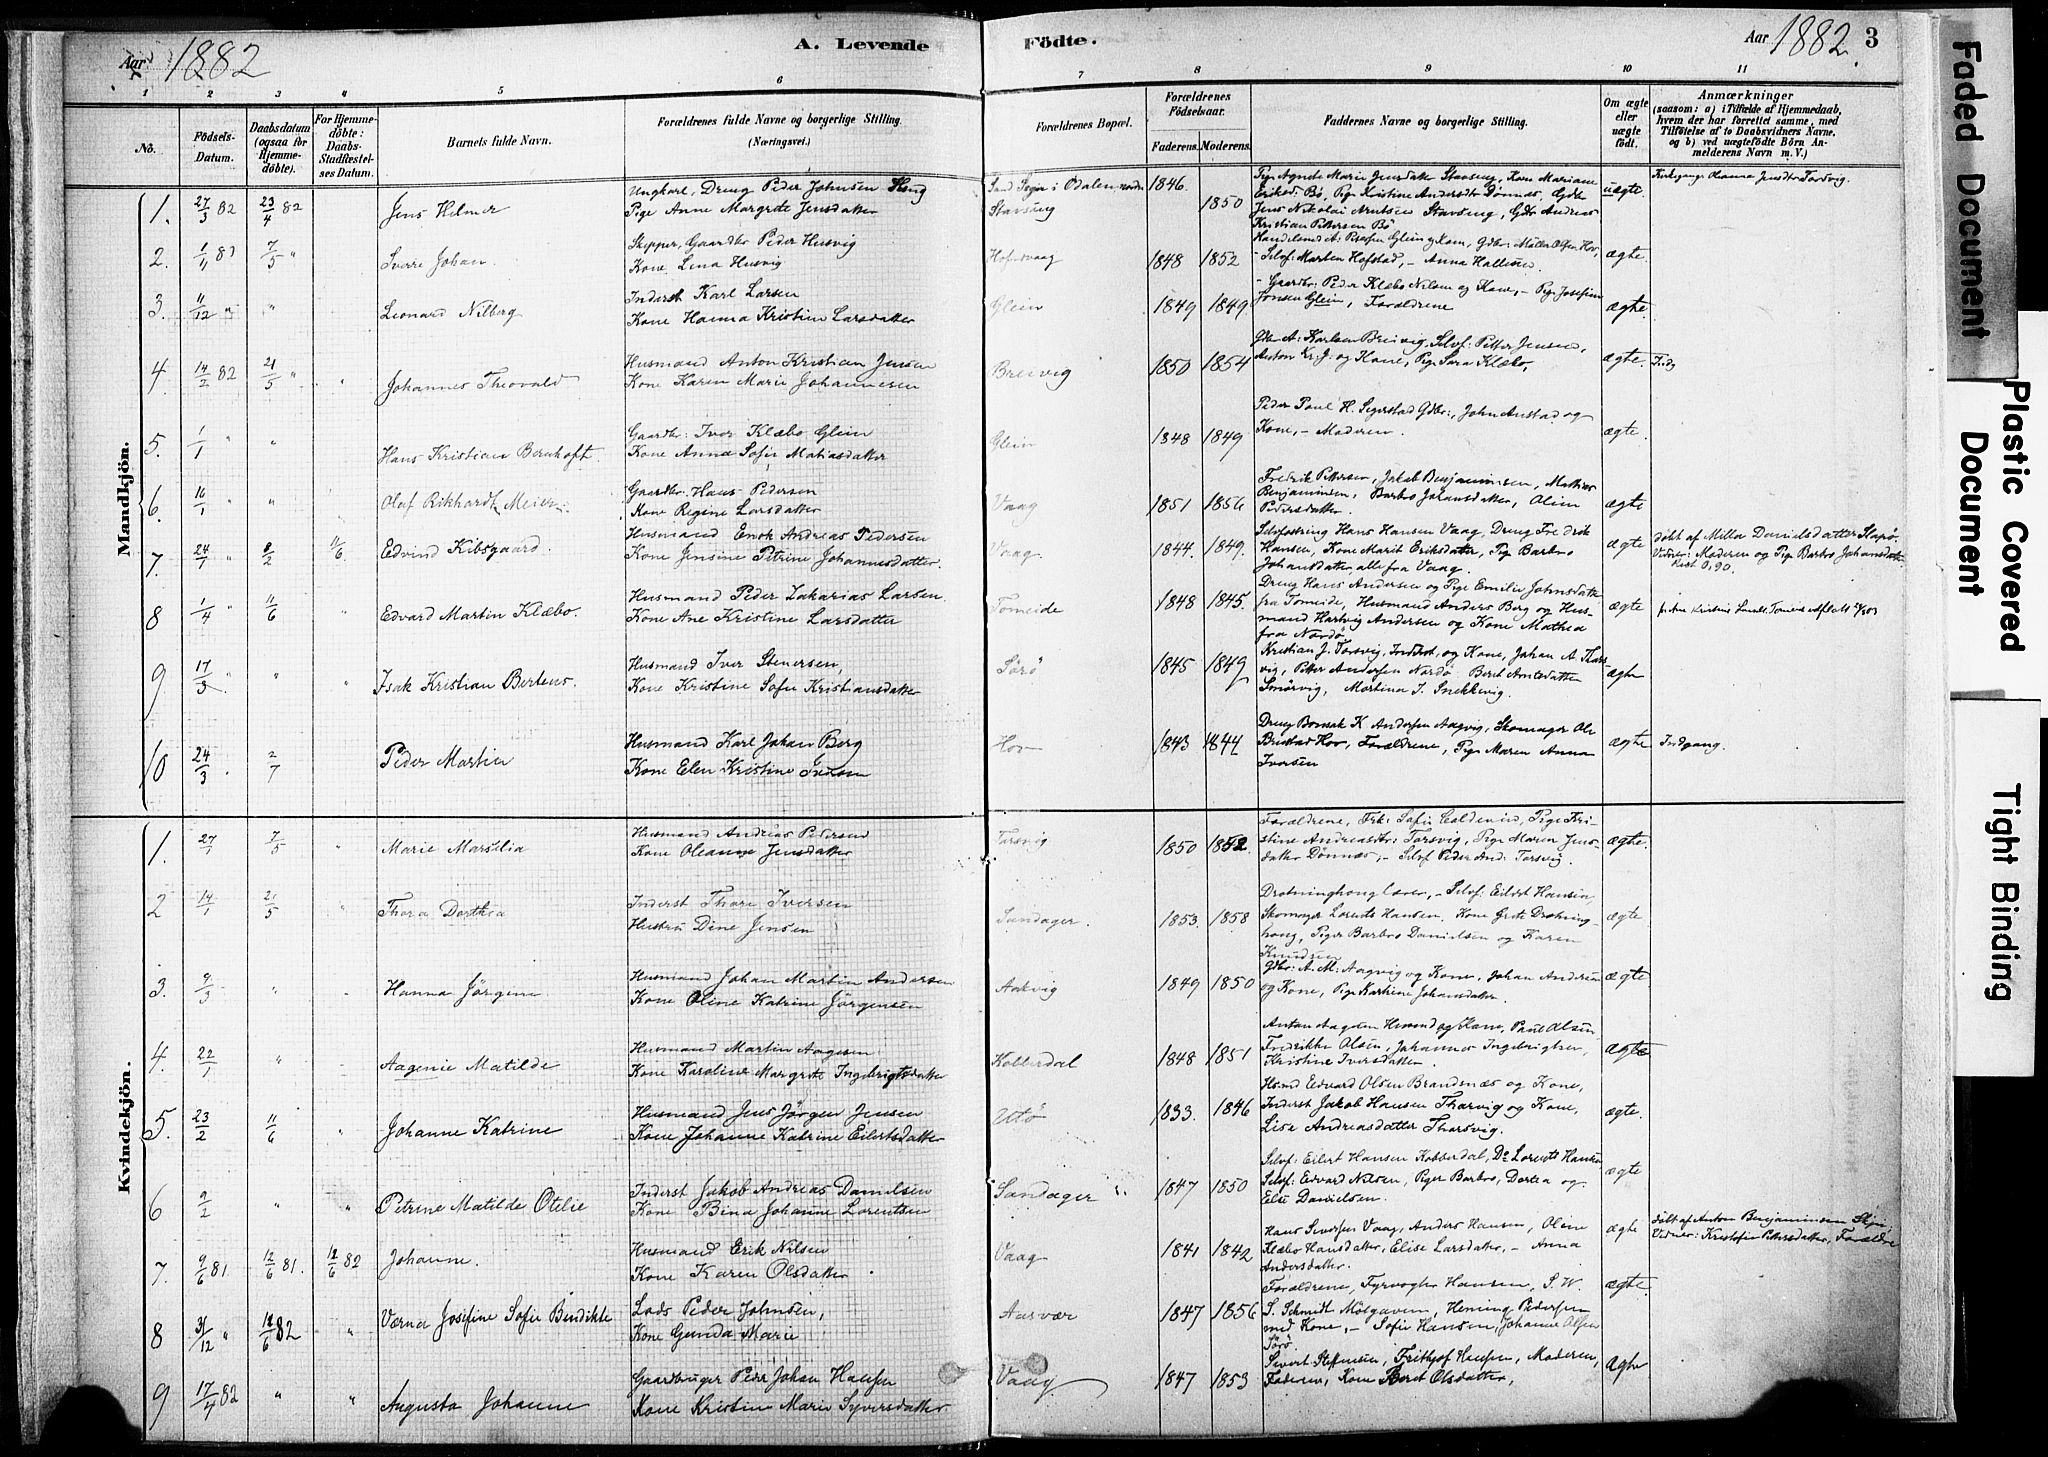 Aar 1882 A. Levende Födte. Aar 1882. 3
1 2 3 4 5 6 7 8 9 10 11
No. Födsels-Datum. Daabsdatum (ogsaa for Hjemmedöbte). For Hjemmedöbte: Daabs-Stadfæstelses Datum. Barnets fulde Navn. Forældrenes fulde Navne og borgerlige Stilling. (Næringsvei.) Forældrenes Bopæl. Forældrenes Födselsaar. Faderens. Moderens. Faddernes Navne og borgerlige Stilling. Om ægte eller uægte födt. Anmærkninger (saasom: a) i Tilfælde af Hjemmedaab, hvem der har forrettet samme, med Tilföielse af to Daabsvidners Navne, og b) ved uægtefödte Börn Anmelderens Navn m. V.)
Mandkjön.
1. 27/3 82 23/4 82 Jens Helmer
Ungkarl, Dreng Peder Johnsen
Pige Anne Margrete Jensdatter
Stavseng 1846. 1850
Pige Agnete Marie Jensdatter Stavseng, Kone Mariane
Jens Nikolai Arntsen Stavseng, Gdbr Andreas
Kristian Pettersen Bö
uægte
2. 1/11 81 7/5 " Sverre Johan
Skipper, Gaardbr Peder Husvig
Kone Lena Husvig
1848 1852
Selvf: Morten Hofstad, - Anna
ægte.
3. 11/12 " " Leonard Nilberg
Inderst Karl Larsen
Kone Hanna Kristine Larsdatter
Glein 1849 1849
- Gaardbr: Peder Klæbo Nilsen og Kone, - Pige Josefine
Jensen Glein, Forældrene
ægte
4. 14/2 82 21/5 " " Johannes Theovald
Husmand Anton Kristian Jensen
Kone Karen Marie Johannesen
Breivig 1850 1854
Gdbr A: Karlsen Breivig, Selvf: Petter Jensen,
Anton Kr. J. og Kone, Pige Sara Klæbo,
ægte.
5. 1/1 " " Hans Kristian Bernhoft.
Gaardbr: Iver Klæbo Glein
Kone Anna Sofie Matiasdatter
Glein 1848 1849
Peder Paul H. Segerstad Gdbr:, John Anstad og
Kone, - Moderen.
ægte.
6. 16/1 " " Olaf Rikhardt Meier
Gaardbr. Hans Pedersen
Kone Regine Larsdatter
Vaag 1851 1856
Fredrik Pettersen, Jakob Benjaminsen, Mathias
Benjaminsen, Barbro Johansdatter, Oline
Pedersdatter.
ægte
7. 24/1 " 9/2 11/6 Edvind Kibsgaard.
Husmand Enok Andreas Pedersen
Kone Jensine Petrine Johannesdatter.
Vaag 1844. 1849.
Selvfostring Hans Hansen Vaag, Dreng Fredrik
Hansen, Kone Marit Eriksdatter, Pige Barbro
Johansdatter, alle fra Vaag.
ægte
döbt af Milla Danielsdatter
Vidner: Moderen og Pige Barbro Johansdatter
8 1/4 " 11/6 " Edvard Martin Klæbo.
Husmand Peder Zakarias Larsen.
Kone Ane Kristine Larsdatter
Tomeide 1848 1845.
Dreng Hans Andersen og Pige Emilie Johnsdatter
fra Tomeide, Husmand Anders Berg og Husmand
Hartvig Andersen og Kone Mathea
fra Nordö
ægte
9 17/3 " " " Isak Kristian Bertens.
Husmand Iver Stenersen,
Kone Kristine Sofie Kristiansdatter
Sörö 1845 1849
Kristian J. Torsvig, Inderst, og Kone, Johan A Thorsvig,
Petter Andersen Nordö, Beret Arntsdatter
Smörvig, Martina I. Snekkevig.
ægte
10 24/3 . 2/7 Peder Martin
Husmand Karl Johan Berg
Kone Elen Kristine
Hov 1843 1844
Dreng Bonsak K. Andersen Aagvig, Skomager Ole
Hov, Forældrene, Pige Maren Anna
Iversen
ægte Indgang.
Kvindekjön.
1. 27/1 7/5 " Marie Marselia
Husmand Andreas Pedersen
Kone Oleanne Jensdatter
Torsvig 1850 1852.
Forældrene, Frk: Sofie, Pige Kristine
Andreasdtr: Torsvig, Pige Maren Jensdatter
Dönnes, - Selvf Peder And: Torsvig.
ægte.
2 14/1 21/5 " Thora Dorthea
Inderst Thore Iversen
Hustru Dine Jensen
Sandager. 1853. 1858
Dronninghong Lærer, - Selvf: Eilert Hansen,
Skomager Lorents Hansen. Kone Grete Dronninghong,
Piger Barbro Danielsen og Karen
Knudsen
ægte
3. 9/3 " " Hanna Jörgine
Husmand Johan Martin Andersen
Kone Oline Katrine Jörgensen
Aakvig 1849 1850
Gdbr: A. M: Aagvig og Kone, Johan Andersen
og Kone, Pige Kathrine Johansdatter.
ægte
4. 22/1 " " Aagenie Matilde
Husmand Martin Aagesen
Kone Karoline Margrete Ingebrigtsdatter
Kobberdal 1848 1851
Anton Aagesen Husmd og Kone, Paul Olsen
Fredrikke Olsen, Johannes Ingebrigtsen,
Kristine Iversdatter
ægte
5. 23/2 11/6 " Johanne Katrine
Husmand Jens Jörgen Jensen
Kone Johanne Katrine Eilertsdatter
1833 1846
Hsmd Edvard Olsen Brandsnæs og Kone,
Inderst Jakob Hansen Tharvig og Kone,
Lise Andreasdatter Thorsvig.
ægte.
6 9/2 " " Petrine Matilde Otelie
Inderst Jakob Andreas Danielsen
Kone Bina Johanne Lorentsen
Sandager 1847 1850
Selvf: Eilert Hansen Kobberdal, Do Lorents Hansen
Selvf: Edvard Nilsen, Piger Barbro, Dortea og
Else Danielsen.
ægte
7. 9/6 81 12/6 81. 12/6 82 Johanne.
Husmand Erik Nilsen
Kone Karen Olsdatter
Vaag 1841 1842
Hans Siversen Vaag, Anders Hansen, Oline
Klæbo Hansdatter, Elise Larsdatter, - Anna
Andersdatter.
ægte
döbt af Anton Benjaminsen
Vidner: Kristofin Pettersdatter, Forældre
8 31/12 " 12/6 82 " Verna Josefine Sofie Bendikte
Lods Peder Johnsen,
Kone Gunda Marie
Aasvær 1847 1856
Forældrene, Fyrvogter Hansen, S. W.
S. Schmidt, Hening Pedersen
med Kone, - Sofie Hansen, Johanne Olsen
Sörö
ægte
9 17/4 82 " " Augusta Johanne
Gaardbruger Peder Johan Hansen
Kone Kristine Marie Syversdatter
Vaag 1847 1853
Sivert Steffensen, Frithjof Hansen, Moderen,
Faderen, Kone Beret Olsdatter,
ægte
Faded Document
Plastic Covered Document
Tight Binding